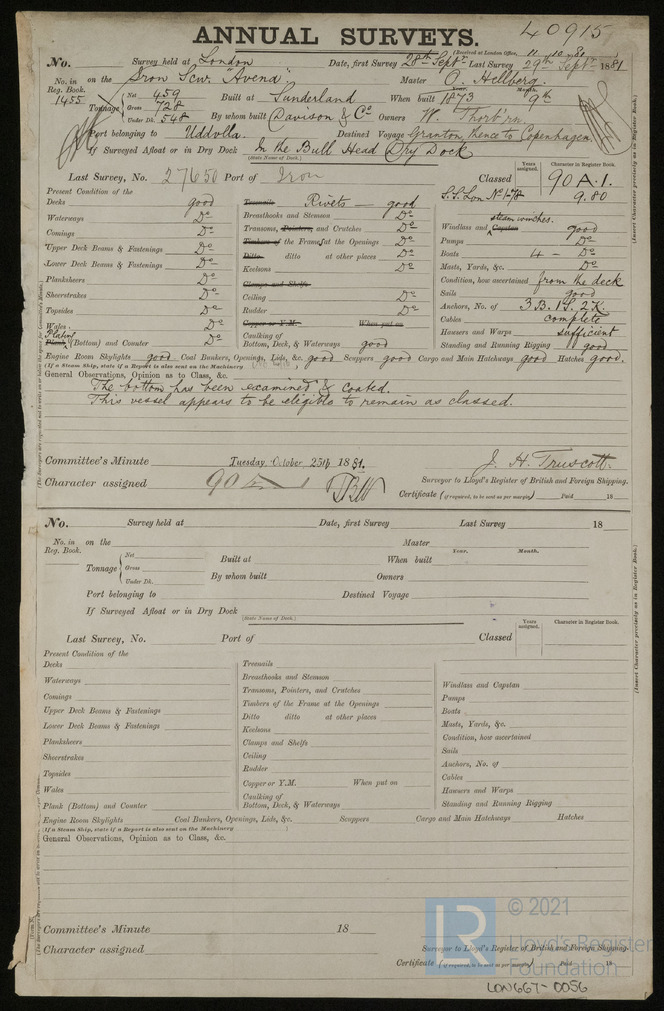 40915
ANNUAL SURVEYS.
(Received at London Office, 11 10 80
No. Survey held at London Date, first Survey 28th Septr Last Survey 29th Septr 1881
No. in Reg. Book. 1455 on the Iron Scw. "Avena" Master O. Hellberg.
Tonnage Net 459 Gross 728 Under Dk. 548
Built at Sunderland When built Year. 1873 Month. 9th
By whom built Davison & Co Owners W. Thorb'rn.
Port belonging to Uddvlla. Destined Voyage Granton, thence to Copenhagen.
If Surveyed Afloat or in Dry Dock In the Bull Head Dry Dock
(State Name of Dock.)
Last Survey, No. 27650 Port of Iron Classed S.S. Lon No 1-78
Years assigned. Character in Register Book. 90 A.1. 9.80
(Insert Character precisely as in Register Book.)
Present Condition of the
Decks good
Waterways Do
Comings Do
Upper Deck Beams & Fastenings Do
Lower Deck Beams & Fastenings Do
Planksheers Do
Sheerstrakes Do
Topsides Do
Wales Do
Plating Plank (Bottom) and Counter Do
Treenails Rivets — good
Breasthooks and Stemson Do
Transoms, Pointers, and Crutches Do
Timbers of the Frame at the Openings Do
Ditto ditto at other places Do
Keelsons Do
Clamps and Shelfs
Ceiling Do
Rudder Do
Copper or Y.M. When put on
Caulking of Bottom, Deck, & Waterways good
steam winches.
Windlass and Capstan good
Pumps Do
Boats 4 - Do
Masts, Yards, &c. Do
Condition, how ascertained from the deck
Sails good
Anchors, No. of 3 B. 1 S. 2 K.
Cables complete
Hawsers and Warps sufficient
Standing and Running Rigging good
Engine Room Skylights good. Coal Bunkers, Openings, Lids, &c. good Scuppers good Cargo and Main Hatchways good Hatches good.
(If a Steam Ship, state if a Report is also sent on the Machinery
General Observations, Opinion as to Class, &c.
The bottom has been examined & coated.
This vessel appears to be eligible to remain as classed.
Committee's Minute Tuesday, October 25th 1881.
J. H. Truscott.
Character assigned 90
Surveyor to Lloyd's Register of British and Foreign Shipping.
Certificate (if required, to be sent as per margin) Paid 18
No. Survey held at Date, first Survey Last Survey 18
No. in Reg. Book. on the Master
Tonnage Net Gross Under Dk.
Built at When built Year. Month.
By whom built Owners
Port belonging to Destined Voyage
If Surveyed Afloat or in Dry Dock
(State Name of Dock.)
Last Survey, No. Port of Classed
Years assigned. Character in Register Book.
(Insert Character precisely as in Register Book.)
Present Condition of the
Decks
Waterways
Comings
Upper Deck Beams & Fastenings
Lower Deck Beams & Fastenings
Planksheers
Sheerstrakes
Topsides
Wales
Plank (Bottom) and Counter
Treenails
Breasthooks and Stemson
Transoms, Pointers, and Crutches
Timbers of the Frame at the Openings
Ditto ditto at other places
Keelsons
Clamps and Shelfs
Ceiling
Rudder
Copper or Y.M. When put on
Caulking of Bottom, Deck, & Waterways
Windlass and Capstan
Pumps
Boats
Masts, Yards, &c.
Condition, how ascertained
Sails
Anchors, No. of
Cables
Hawsers and Warps
Standing and Running Rigging
Engine Room Skylights Coal Bunkers, Openings, Lids, &c. Scuppers Cargo and Main Hatchways Hatches
(If a Steam Ship, state if a Report is also sent on the Machinery )
General Observations, Opinion as to Class, &c.
Committee's Minute 18
Character assigned
Surveyor to Lloyd's Register of British and Foreign Shipping.
Certificate (if required, to be sent as per margin) Paid 18
LR © 2021
Lloyd's Register
Foundation
LON667-0056